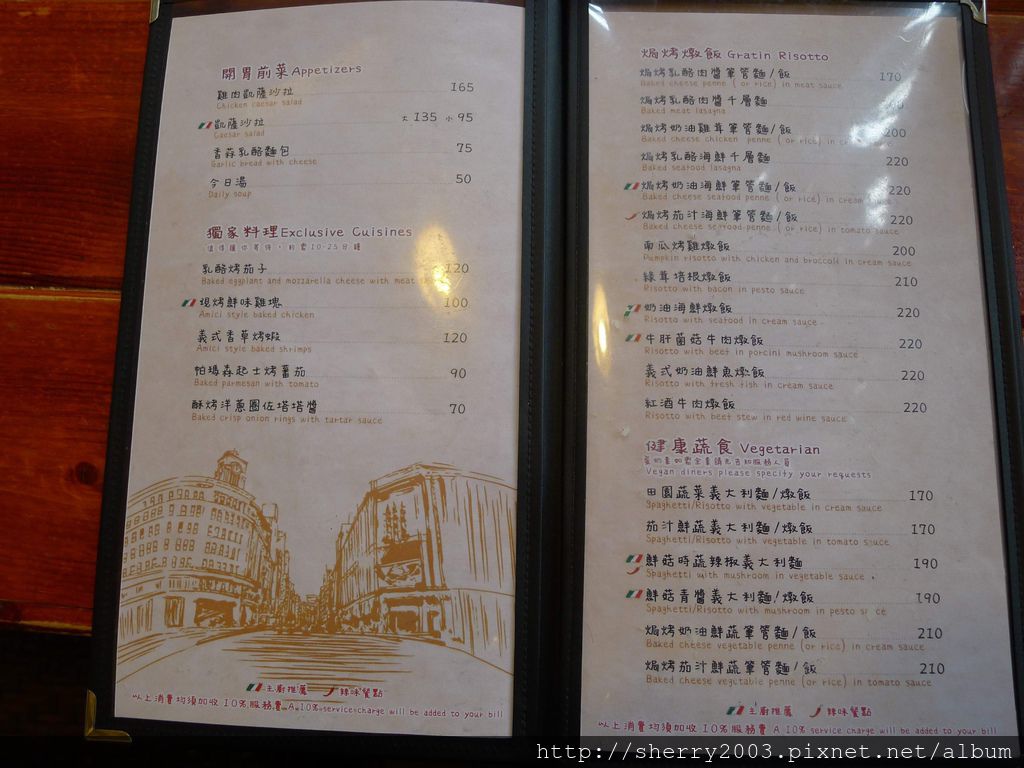 開胃前菜 Appetizers
雞肉凱薩沙拉 165
Chicken caesar salad
凱薩沙拉 大 135 小 95
Caesar salad
香蒜乳酪麵包 75
Garlic bread with cheese
今日湯 50
Daily soup
獨家料理 Exclusive Cuisines
值得讓你等待，約需10-25分鐘
乳酪烤茄子 120
Baked eggplant and mozzarella cheese with meat
現烤鮮味雞塊 100
Amici style baked chicken
義式香草烤蝦 120
Amici style baked shrimps
帕瑪森起士烤蕃茄 90
Baked parmesan with tomato
酥烤洋蔥圈佐塔塔醬 70
Baked crisp onion rings with tartar sauce
主廚推薦 辣味餐點
以上消費均須加收 10%服務費 A 10% service charge will be added to your bill
焗烤燉飯 Gratin Risotto
焗烤乳酪肉醬筆管麵/飯 170
Baked cheese penne (or rice) in meat sauce
焗烤乳酪肉醬千層麵
Baked meat lasagna
焗烤奶油雞茸筆管麵/飯 200
Baked cheese chicken penne (or rice) in cream sauce
焗烤乳酪海鮮千層麵 220
Baked seafood lasagna
焗烤奶油海鮮筆管麵/飯 220
Baked cheese seafood penne (or rice) in cream sauce
焗烤茄汁海鮮筆管麵/飯 220
Baked cheese seafood penne (or rice) in tomato sauce
南瓜烤雞燉飯 200
Pumpkin risotto with chicken and broccoli in cream sauce
綠茸培根燉飯 210
Risotto with bacon in pesto sauce
奶油海鮮燉飯 220
Risotto with seafood in cream sauce
牛肝菌菇牛肉燉飯 220
Risotto with beef in porcini mushroom sauce
義式奶油鮮魚燉飯 220
Risotto with fresh fish in cream sauce
紅酒牛肉燉飯 220
Risotto with beef stew in red wine sauce
健康蔬食 Vegetarian
蛋奶素如需全素請先告知服務人員
Vegan diners please specify your requests
田園蔬菜義大利麵/燉飯 170
Spaghetti/Risotto with vegetable in cream sauce
茄汁鮮蔬義大利麵/燉飯 170
Spaghetti/Risotto with vegetable in tomato sauce
鮮菇時蔬辣椒義大利麵 190
Spaghetti with mushroom in vegetable sauce
鮮菇青醬義大利麵/燉飯 190
Spaghetti/Risotto with mushroom in pesto sauce
焗烤奶油鮮蔬筆管麵/飯 210
Baked cheese vegetable penne (or rice) in cream sauce
焗烤茄汁鮮蔬筆管麵/飯 210
Baked cheese vegetable penne (or rice) in tomato sauce
主廚推薦 辣味餐點
以上消費均須加收 10%服務費 A 10% service charge will be added to your bill
http://sherry2003.pixnet.net/album